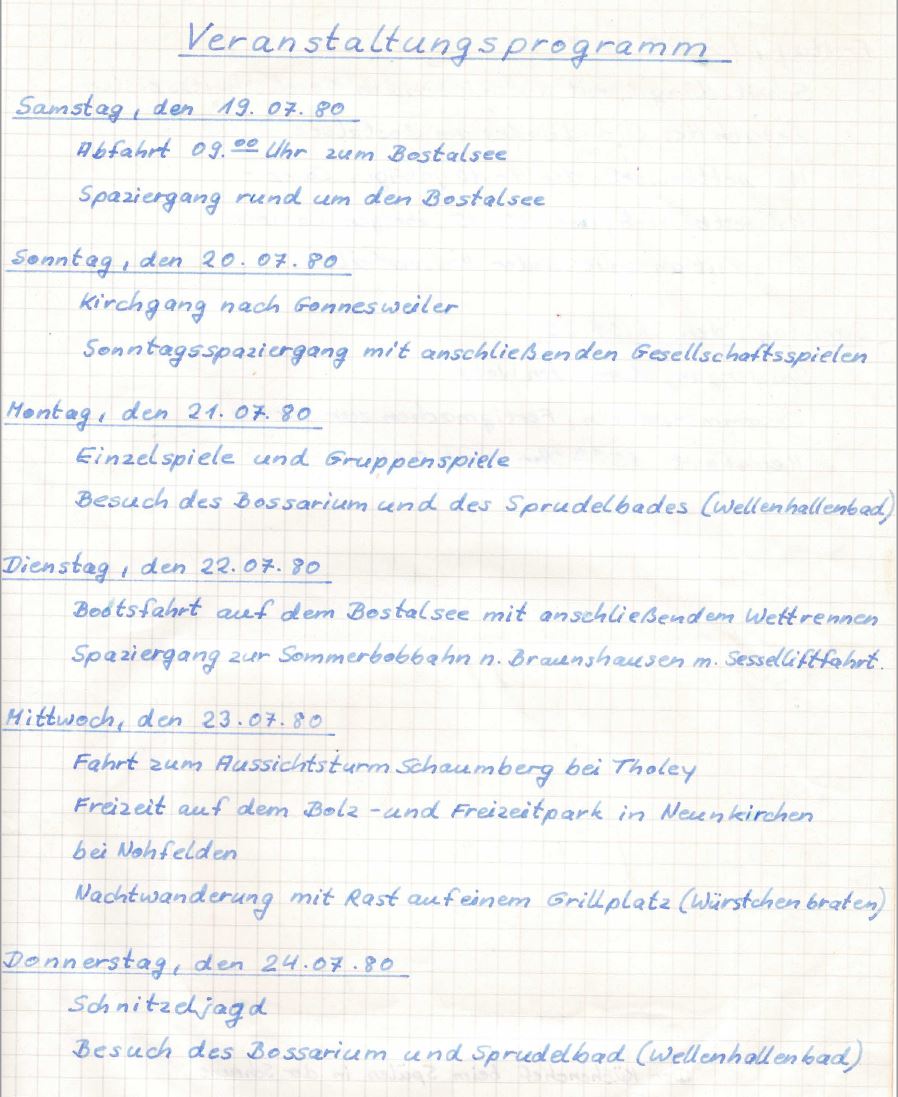 Veranstaltungsprogramm
Samstag, den 19.07.80
Abfahrt 09.00 Uhr zum Bostalsee
Spaziergang rund um den Bostalsee
Sonntag, den 20.07.80
Kirchgang nach Gonnesweiler
Sonntagsspaziergang mit anschließenden Gesellschaftsspielen
Montag, den 21.07.80
Einzelspiele und Gruppenspiele
Besuch des Bossarium und des Sprudelbades (Wellenhallenbad)
Dienstag, den 22.07.80
Bootsfahrt auf dem Bostalsee mit anschließendem Wettrennen
Spaziergang zur Sommerbobbahn n. Braunshausen m. Sesselliftfahrt.
Mittwoch, den 23.07.80
Fahrt zum Aussichtsturm Schaumberg bei Tholey
Freizeit auf dem Bolz-und Freizeitpark in Neunkirchen
bei Nohfelden
Nachtwanderung mit Rast auf einem Grillplatz (Würstchen braten)
Donnerstag, den 24.07.80
Schnitzeljagd
Besuch des Bossarium und Sprudelbad (Wellenhallenbad)